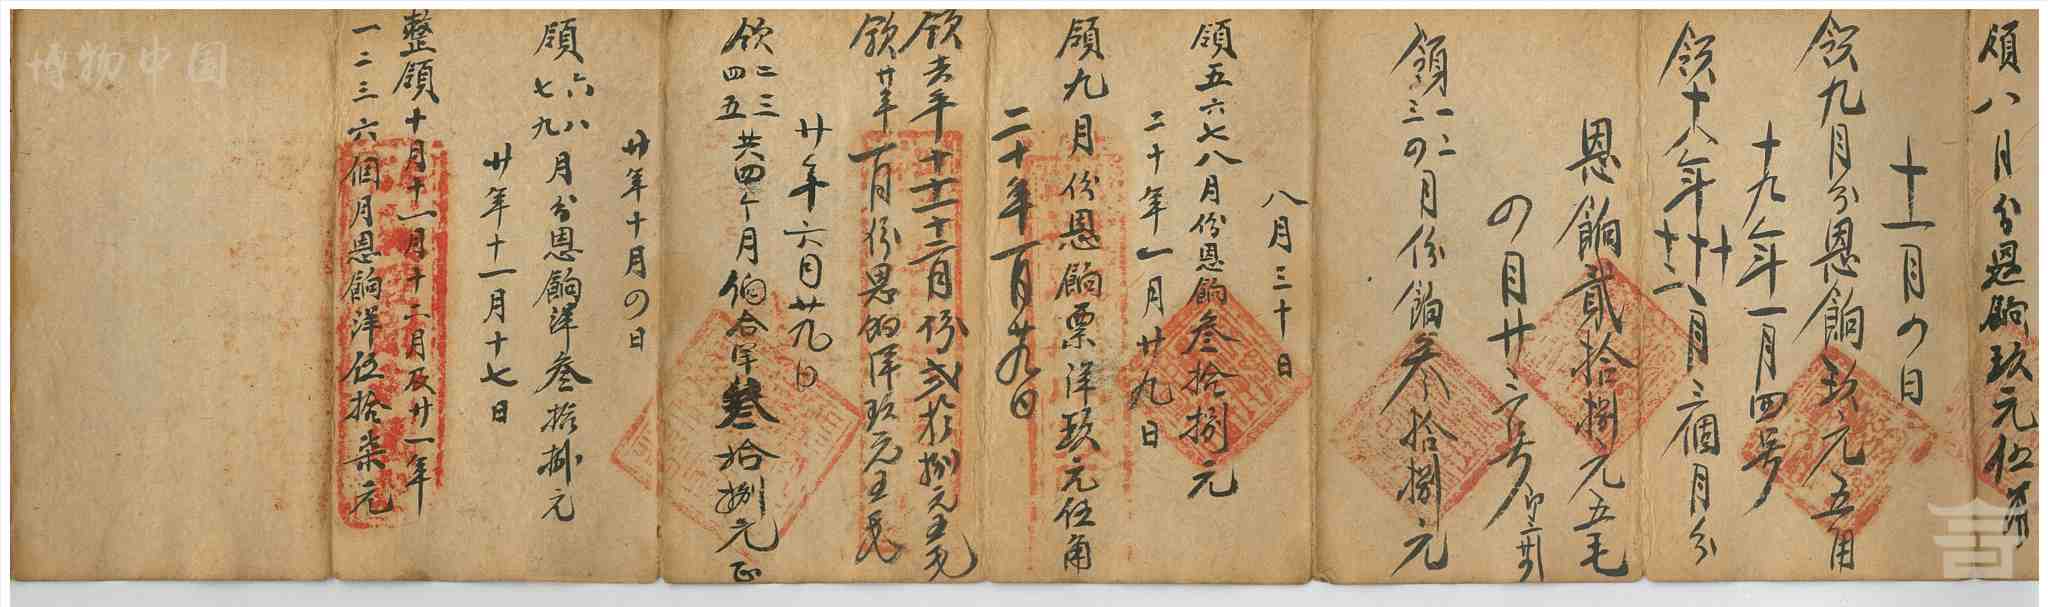 領八月分恩餉玖元伍角
十一月の日
領九月分恩餉玖元五角
十九年一月四号
領十八年十十一十二月三個月分
恩餉貳拾捌元五毛
の月廿六号
領一二三の月份餉叁拾捌元
八月三十日
領五六七八月份恩餉叁拾捌元
二十年一月廿九日
領九月份恩餉票洋玖元伍角
二十年一月廿九日
領去年十十一十二月份弍拾捌元五毛
領廿年一月份恩餉洋玖元五毛
廿年六月廿九日
領二三四五共四个月餉合洋叁拾捌元正
廿年十月の日
領六七八九月分恩餉洋叁拾捌元
廿年十一月十七日
整領十月十一月十二月及廿一年
一二三六個月恩餉洋伍拾柒元
博物中国